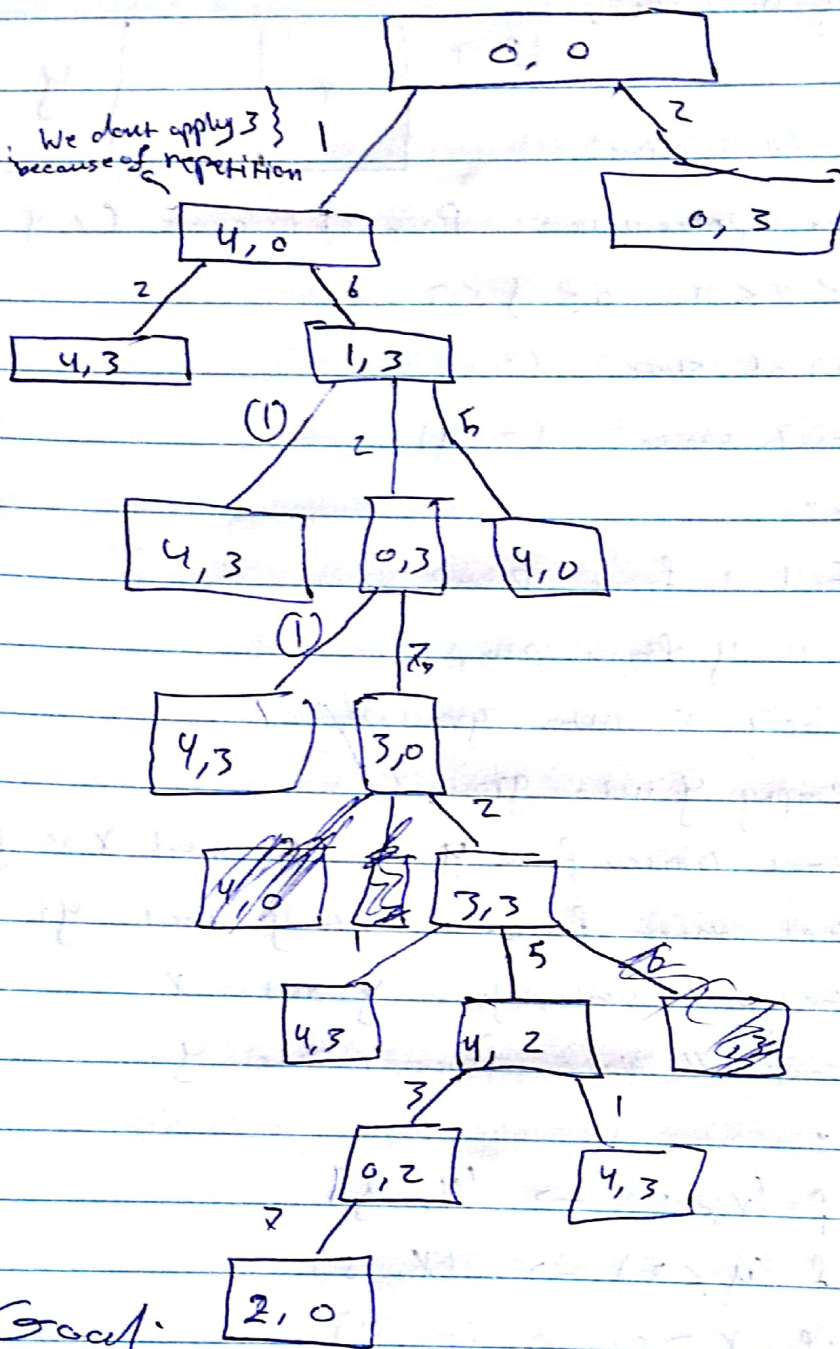 0, 0
We dont apply 3 }
because of repetition
1
2
4, 0
0, 3
2
6
4, 3
1, 3
1
2
5
4, 3
0,3
4,0
1
7
4,3
3,0
2
4,0
3,3
1
5
6
4,3
4, 2
3
1
0,2
4,3
7
2, 0
Goal.